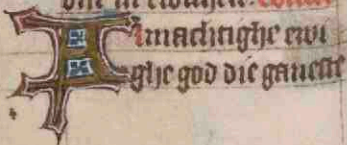 Almachtighe ewi
ghe god die gaueste